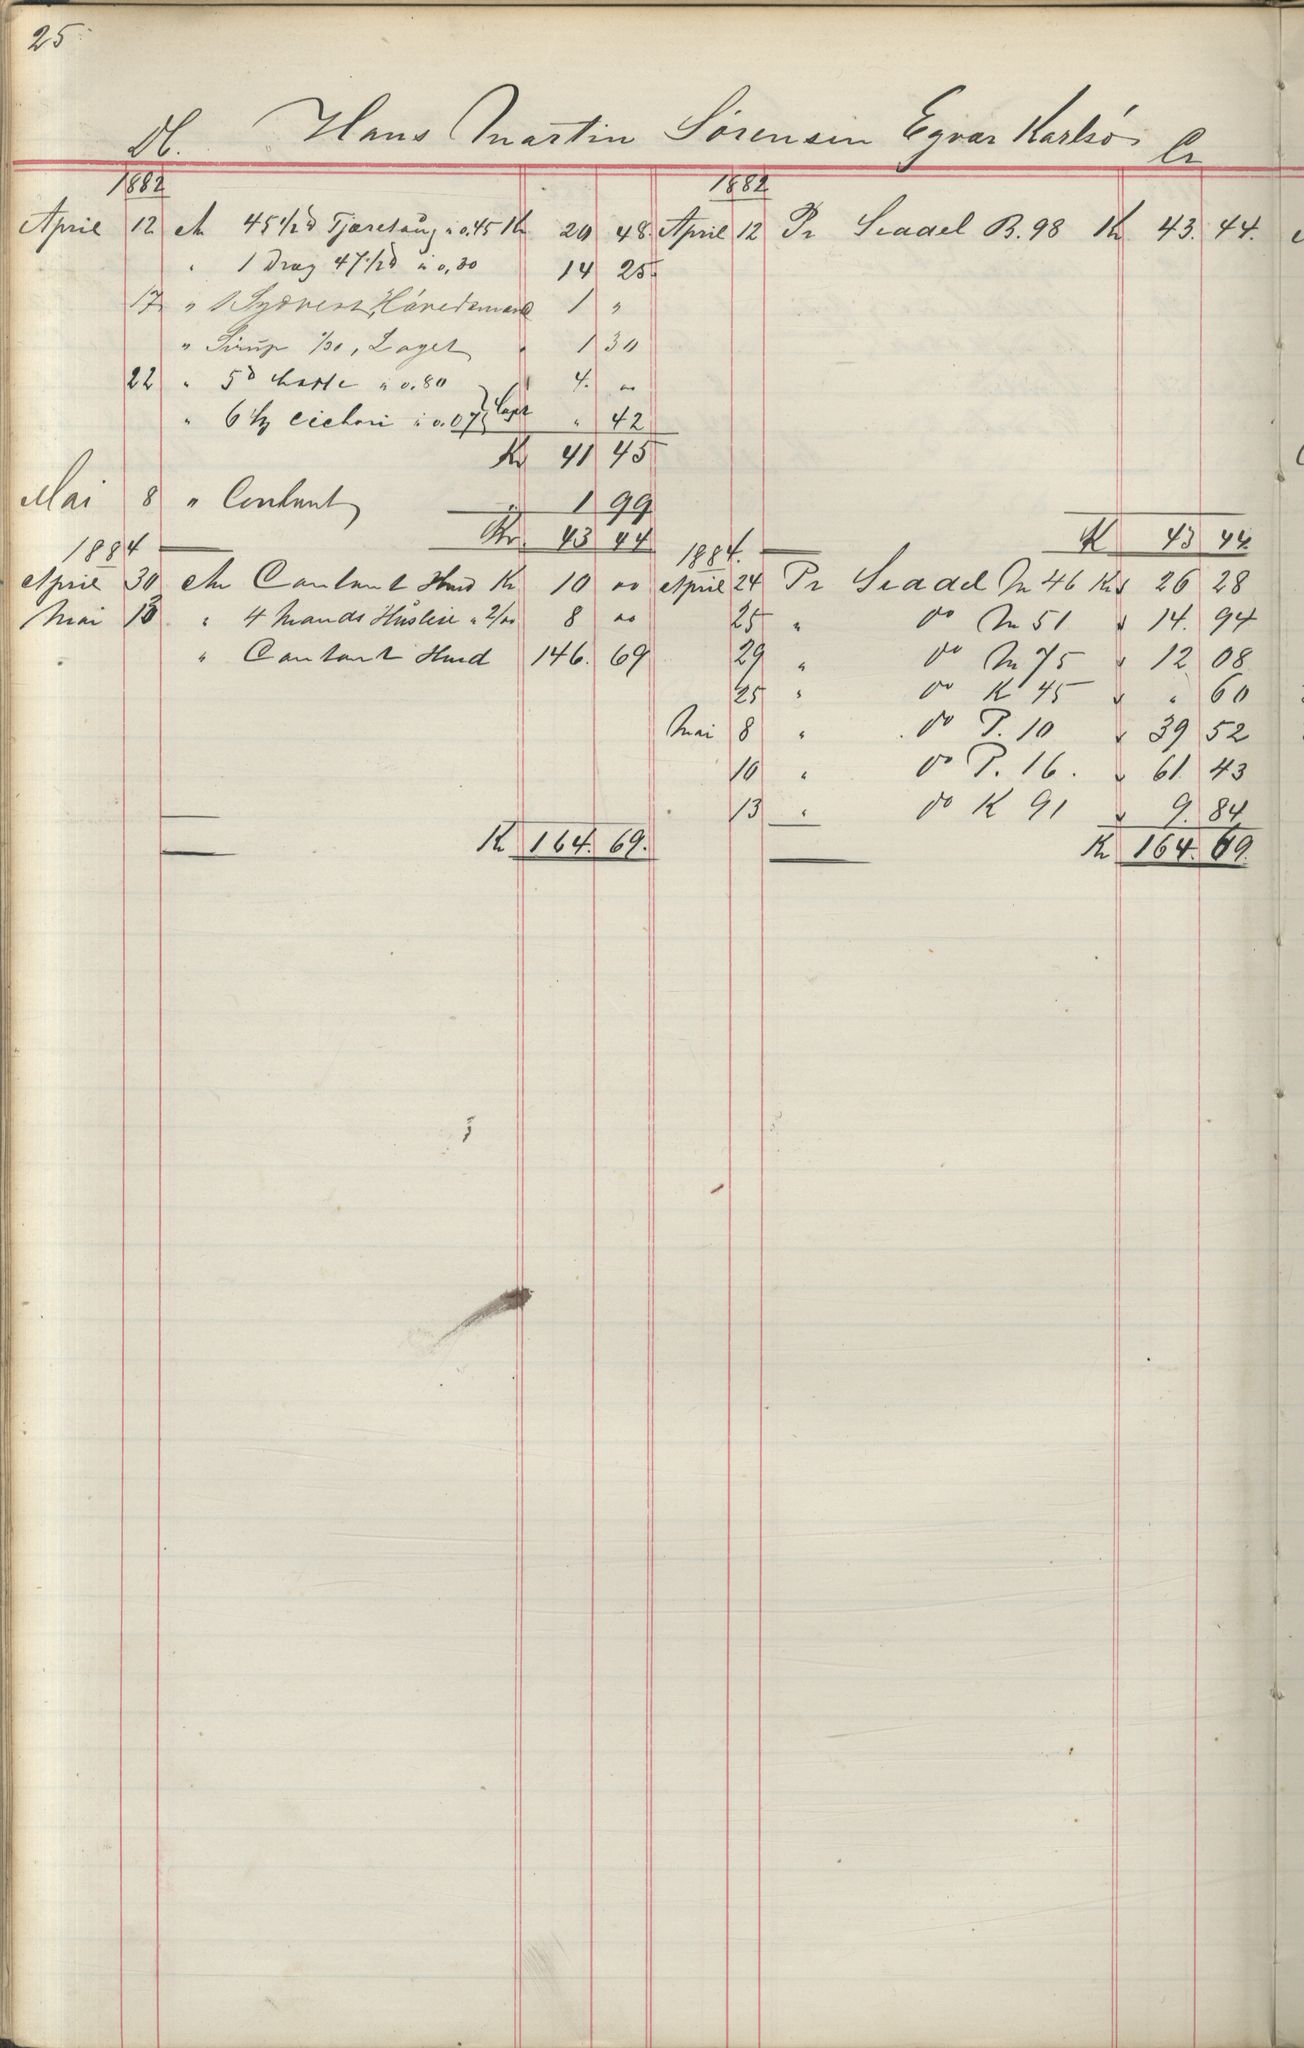 25
Dt. Hans Martin Sørensen Egvær Karlsø Cr
1882
April 12 An 45 1/2 d Tjæretaug a 0.45 Kr 20 48.
" 1 Drag 47 1/2 d a 0,30 14 25.
17 " 1 Sydvest, Høvedsmand 1 "
" Sirup 1/30, Laget " 1 30
22 " 5 d Kaffe a 0.80 4. "
" 6 Cichori a 0.07 " 42
Kr 41 45
Mai 8 " Contant " 1 99
Kr. 43 44
1884
April 30 An Contant Kr 10 "
Mai 13 " 4 Mands Husleie a 2/00 8 "
" Contant 146. 69
Kr 164. 69.
1882
April 12 Pr Seddel B. 98 Kr 43. 44.
Kr 43 44.
1884.
April 24 Pr Seddel M 46 Kr 26 28
25 " do M 51 " 14. 94
29 " do M 75 " 12 08
25 " do K 45 " " 60
Mai 8 " do P. 10 " 39 52
10 " do P. 16. " 61 43
13 " do K 91 " 9. 84
Kr 164. 69.